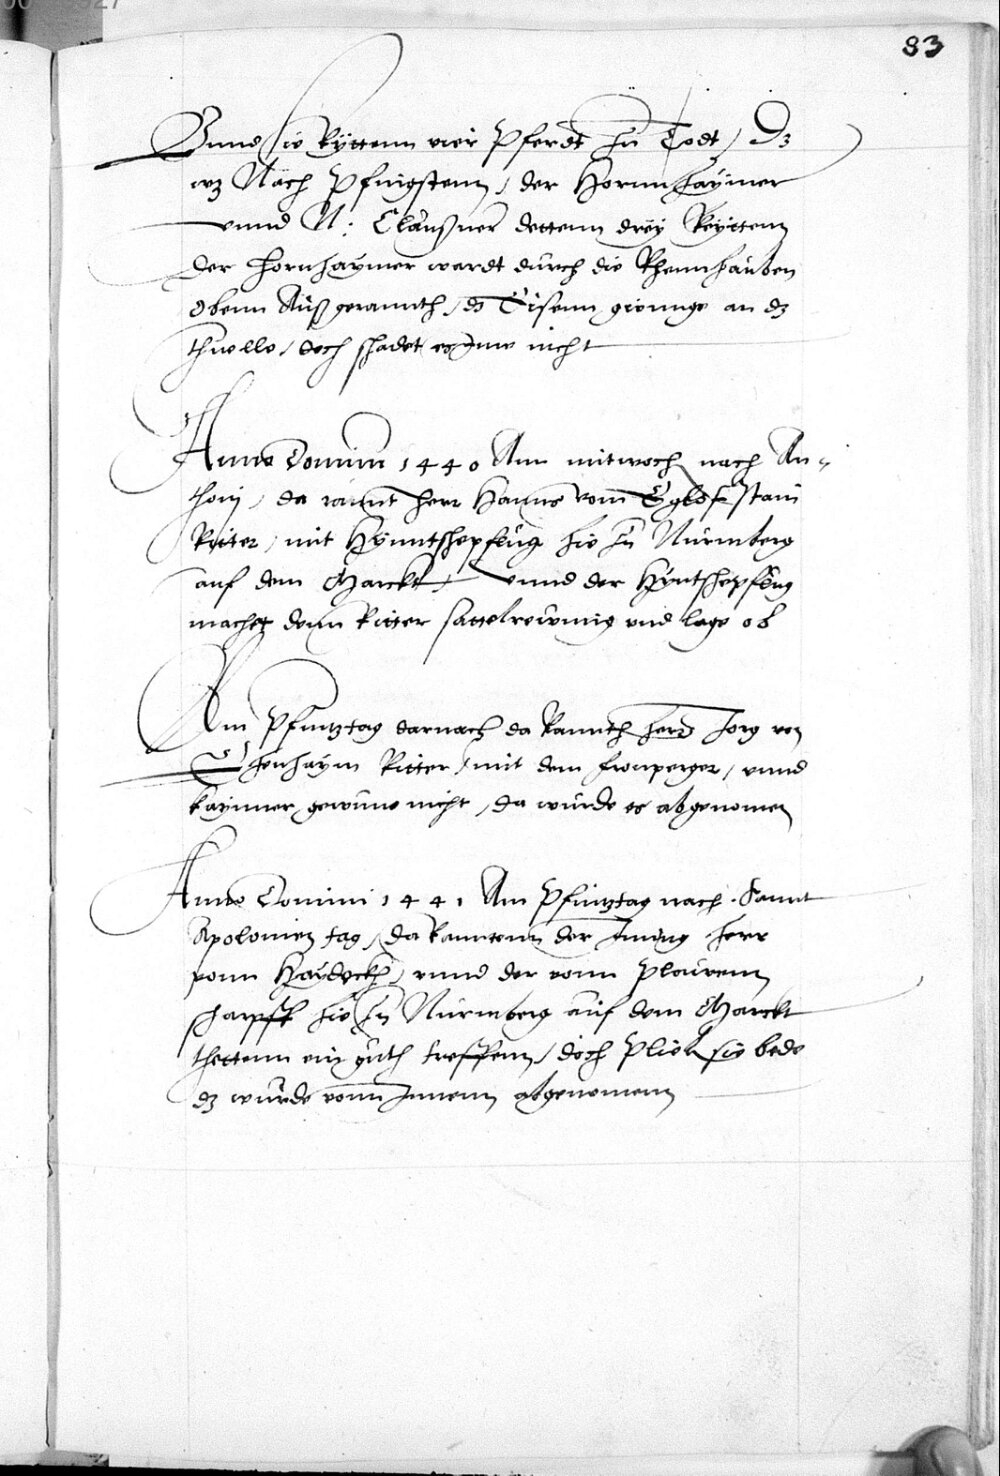 83
Vnnd sie Rÿttenn vier Pferdt zu Todt / Dz
wz Nach Pfingstenn / der Hornnhaÿmer
vnnd N: Claußner dettenn dreÿ Reÿttenn
der Hornhaÿmer wardt durch die Rhennhauben
obenn Auß gerannth / ds Eisenn gienge an dz
/ doch schadet es Jme nicht
Anno Domini 1440 Am mitwoch nach An-
thonj / da rannt Herr Hanns vom Eglofstain
Ritter / mit Hÿnntschepfeng hie zu Nürmberg
auf dem Marckt / vnnd der Hÿntschepfeng
machet denn Ritter sattelreumig vnd lage ob
Am Pfintztag darnach da Rannth Herr Jorg von
Ehenhaÿm Ritter / mit dem fronperger / vnnd
kaÿnner gewunne nicht / da wurde es abgenomen
Anno Domini 1441 Am Pfintztag nach Sannt
Apolonien tag / da Ranntenn der Jung Herr
vonn Haÿdeckh / vnnd der vonn Plauenn
scharpff hie zu Nürmberg auf dem Marckt
thettenn ein guth treffenn / doch plieben sie bede
dz wurde vonn Jnnenn abgenomenn